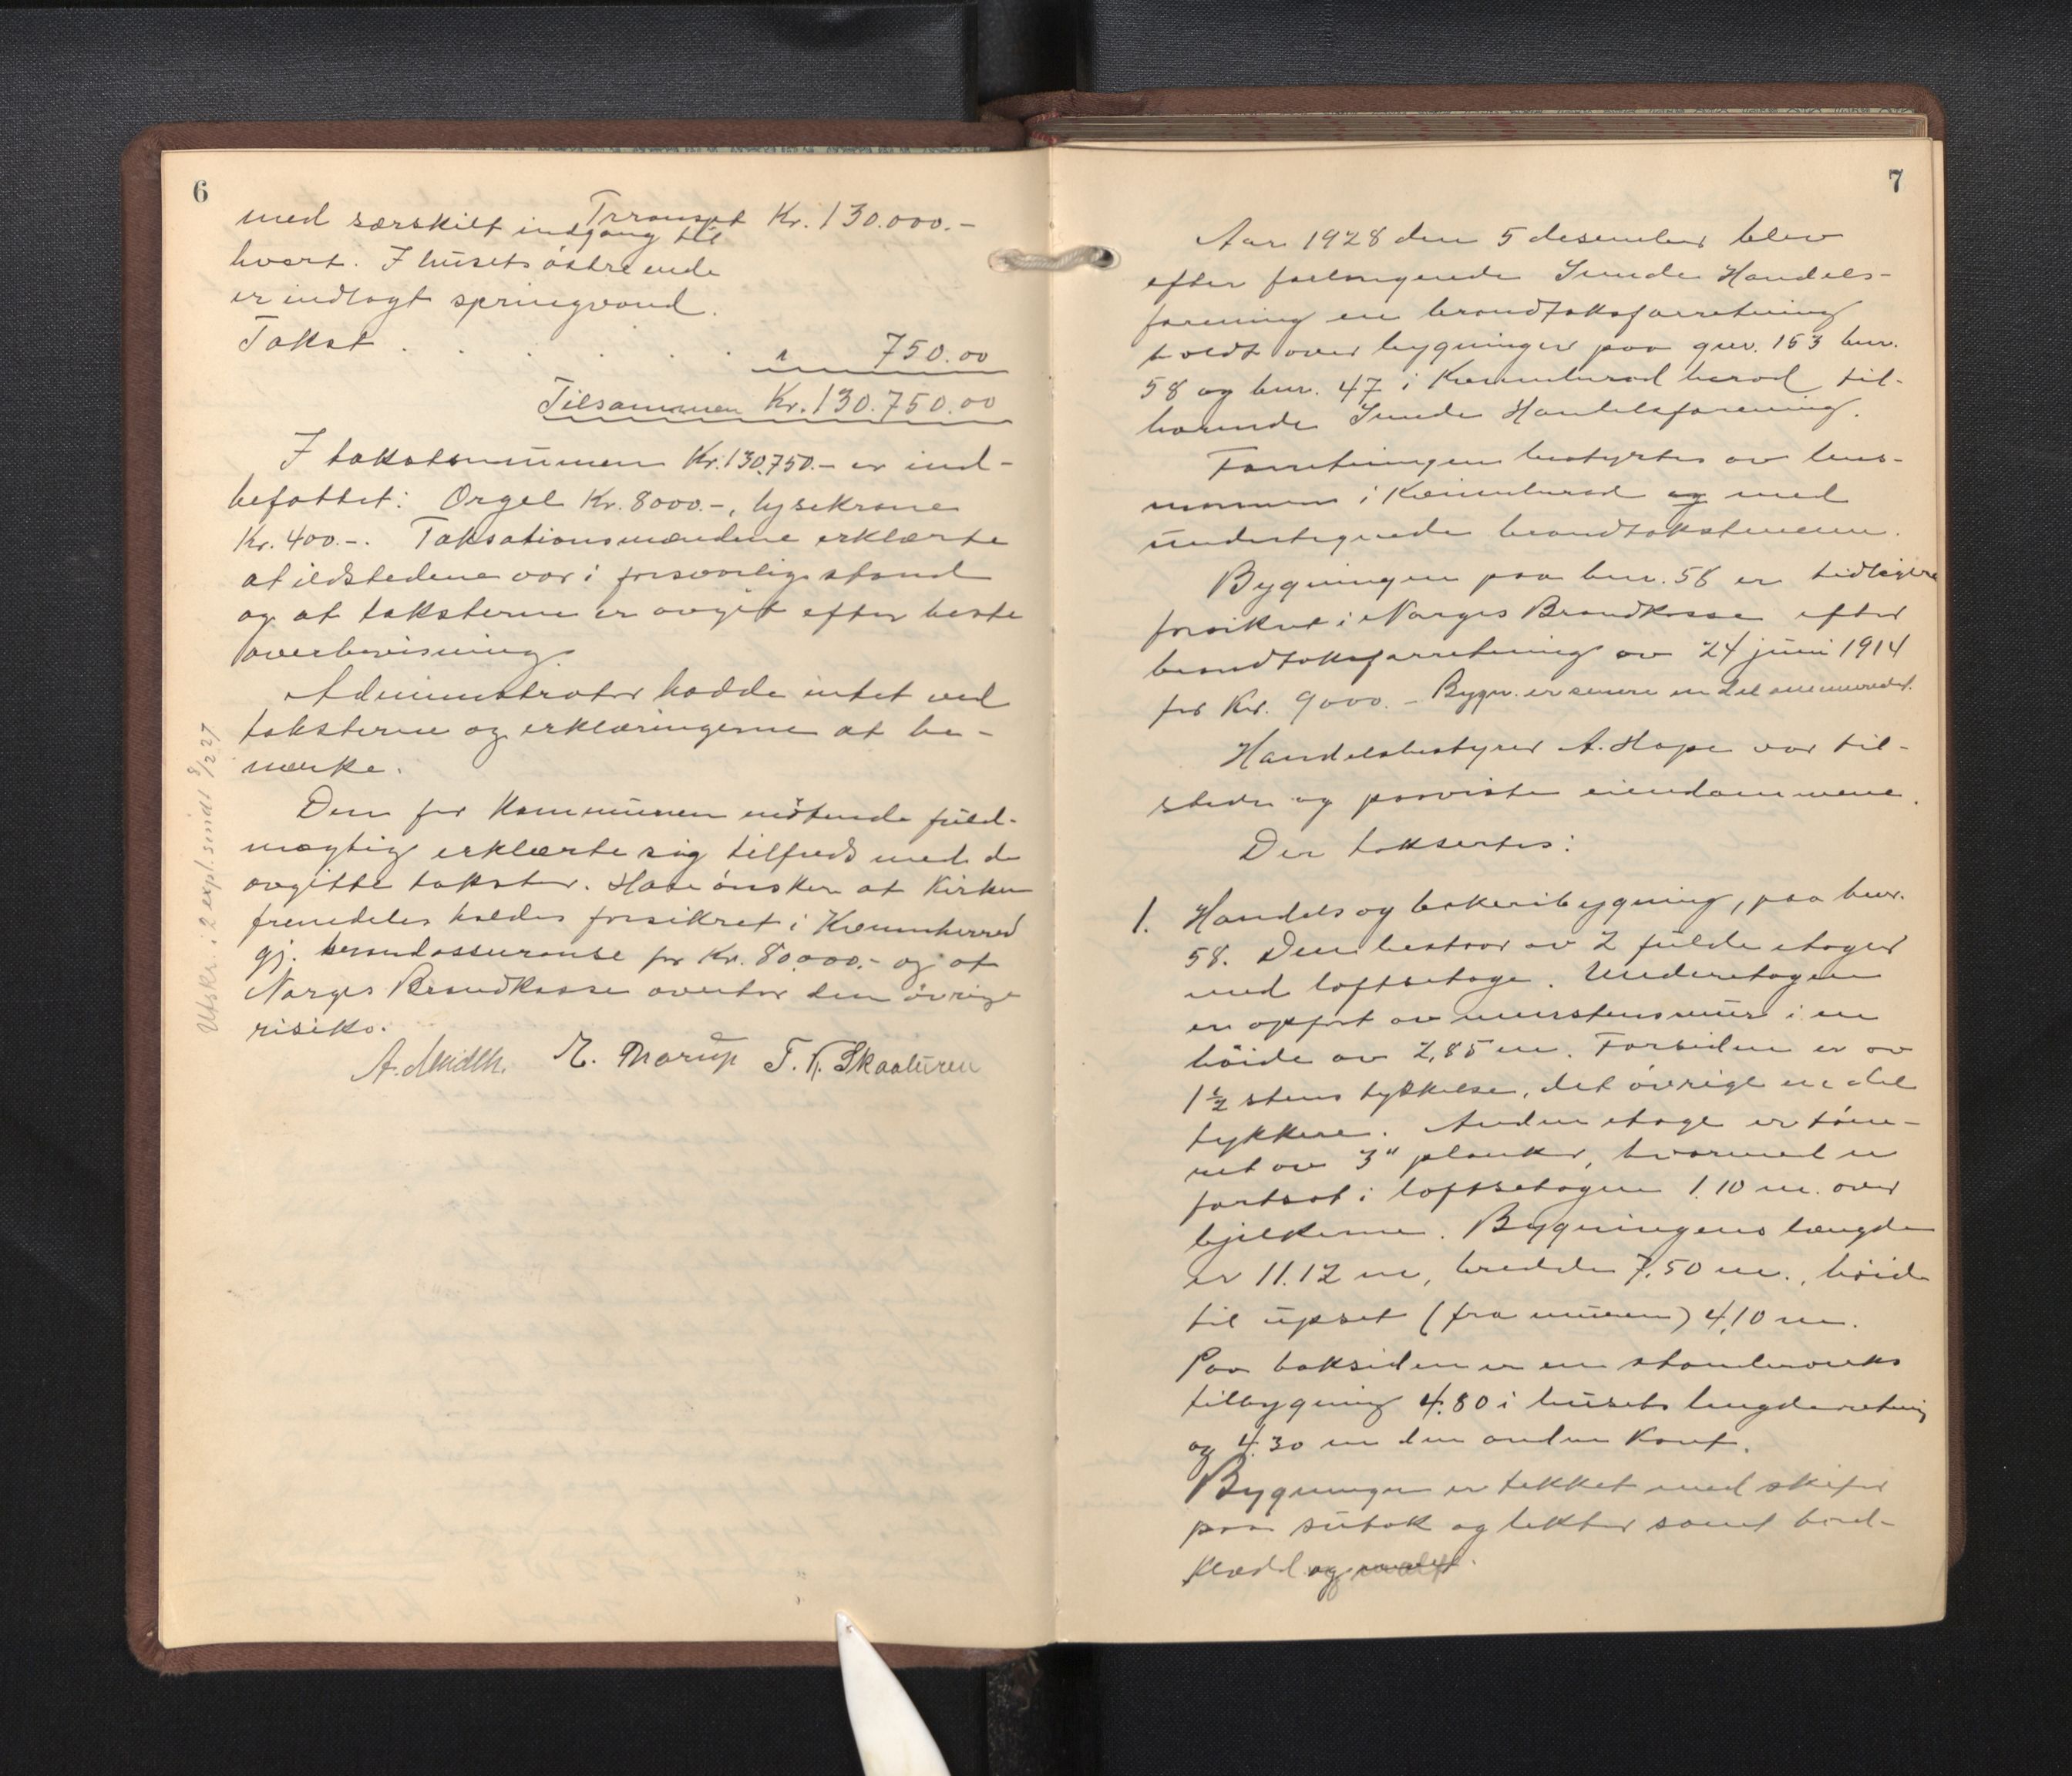 6
Transpt Kr. 130.000.-
med særskilt indgang til
hvert. I husets østre ende
er indlagt springvand.
Takst . . . . . . " 750.00
Tilsammen Kr. 130.750.00
I takstsummen Kr. 130.750.- er ind-
befattet: Orgel Kr. 8000.-, lysekrone
Kr. 400.-. Taksationsmændene erklærte
at ildstedene var i forsvarlig stand
og at taksterne er avgit efter beste
overbevisning.
Administrator hadde intet ved
taksterne og erklæringerne at be-
merke.
Den for kommunen møtende fuld-
mægtig erklærte sig tilfreds med de
avgitte takster. Han ønsker at Kirken
fremdeles holdes forsikret i Kvinnherred
gj. brandassuranse for Kr. 80.000.- og at
Norges Brandkasse overtar den øvrige
risiko.
M. Marup T. K. Skaaluren
Utskr. i 2 expl. sendt 8/2 27
7
Aar 1928 den 5 desember blev
efter forlangende Sunde Handels-
forening en brandtakstforretning
holdt over bygninger paa gnr. 153 bnr.
58 og bnr. 47 i Kvinnherad herad til-
hørende Sunde Handelsforening.
Forretningen bestyrtes av lens-
mannen i Kvinnherad og med
undertegnede brandtakstmenn.
Bygningen paa bnr. 58 er tidligere
forsikret i Norges Brandkasse efter
brandtakstforretning av 24 juni 1914
for Kr. 9000.- Bygn. er senere en del ommurede.
Handelsbestyrer A. Hope var til-
stede og paaviste eiendommene.
Der taksertes:
1. Handels og bakeribygning, paa bnr.
58. Den bestaar av 2 fulde etager
med loftsetage. Underetagen
er opført av murstensmur i en
høide av 2,85 m. Forsiden er av
1½ stens tykkelse, det øvrige en del
tykkere. Anden etage er tøm-
ret av 3" planker, hvormed er
fortsat i loftsetagen 1.10 m. over
bjelkerne. Bygningens længde
er 11.12 m, bredde 7.50 m., høide
til upset (fra muren) 4,10 m.
Paa baksiden er en standerverks
tilbygning 4.80 i husets lengderetning
og 4.30 m den anden kant.
Bygningen er tekket med skifer
paa sutak og lekter samt bord-
klædd og malt.